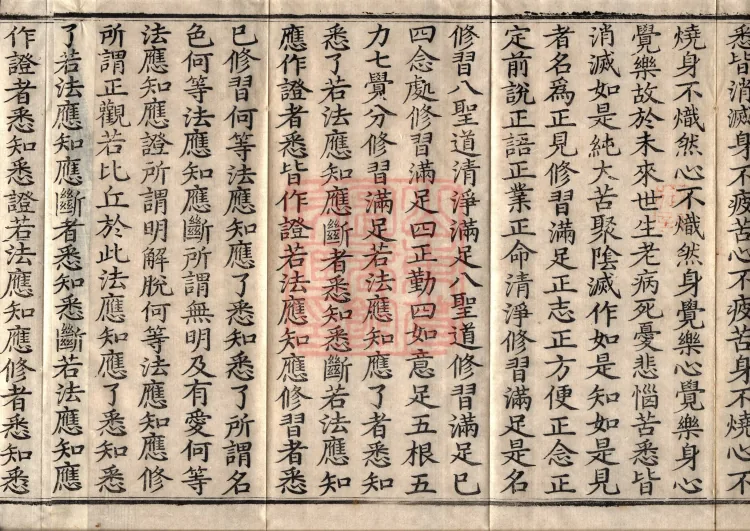 悉皆消滅身不疲苦心不疲苦身不燒心不
燒身不熾然心不熾然身覺樂心覺樂身心
覺樂故於未來世生老病死憂悲惱苦悉皆
消滅如是純大苦聚陰滅作如是知如是見
者名為正見修習滿足正志正方便正念正
定前說正語正業正命清淨修習滿足是名
修習八聖道清淨滿足八聖道修習滿足已
四念處修習滿足四正勤四如意足五根五
力七覺分修習滿足若法應知應了者悉知
悉了若法應知應斷者悉知悉斷若法應知
應作證者悉皆作證若法應知應修習者悉
已修習何等法應知應了悉知悉了所謂名
色何等法應知應斷所謂無明及有愛何等
法應知應證所謂明解脫何等法應知應修
所謂正觀若比丘於此法應知應了悉知悉
了若法應知應斷者悉知悉斷若法應知應
作證者悉知悉證若法應知應修者悉知悉